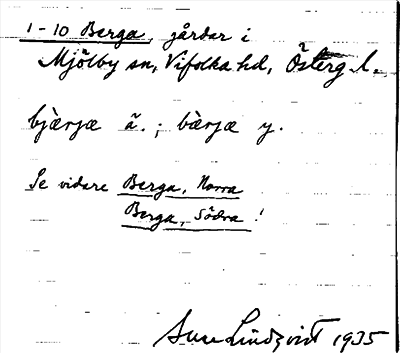 1-10 Berga, gårdar i
Mjölby sn, Vifolka hd, Österg. l.
bjærjæ ä. ; bærjæ y.
Se vidare Berga, Norra
Berga, Södra!
Sune Lindqvist 1935